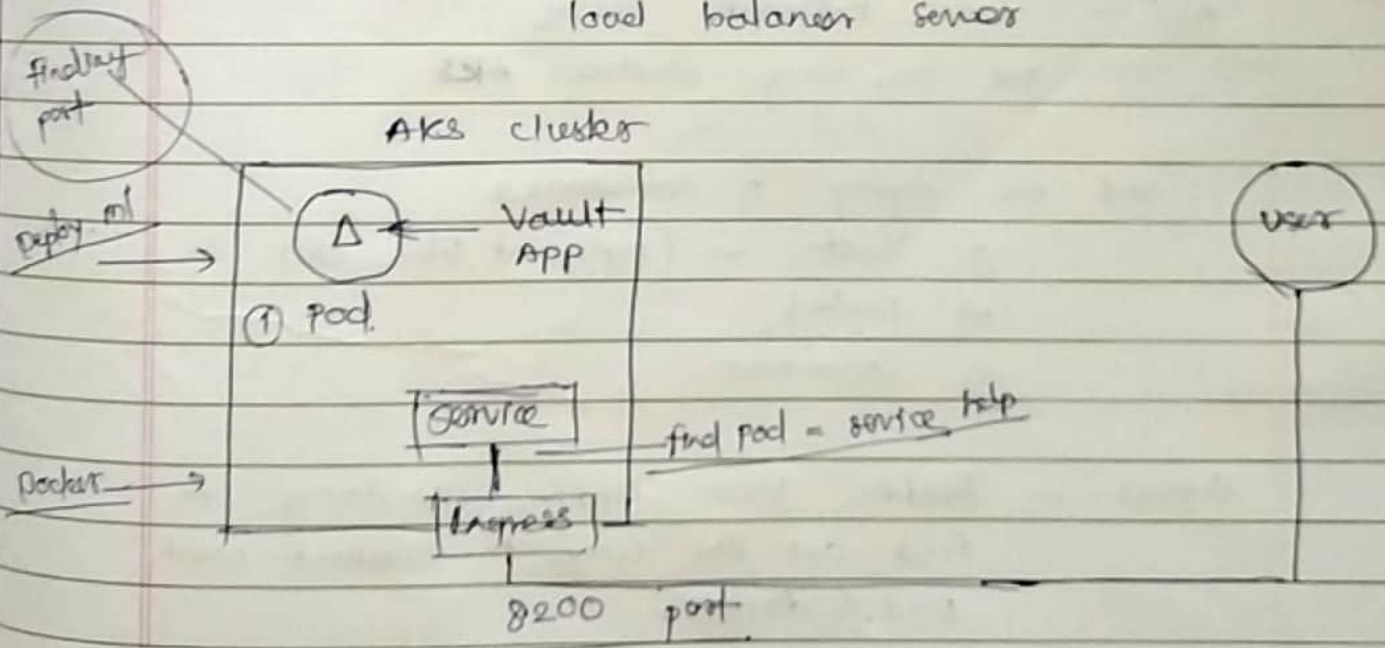 load balancer server
finding
port
AKS cluster
Deploy.yml
Vault
APP
user
① Pod.
Service
find pod = service help
Docker
Ingress
8200 port